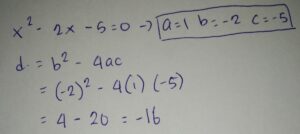 x² - 2x - 5 = 0 → a=1 b=-2 c=-5
d = b² - 4ac
= (-2)² - 4(1)(-5)
= 4 - 20 = -16